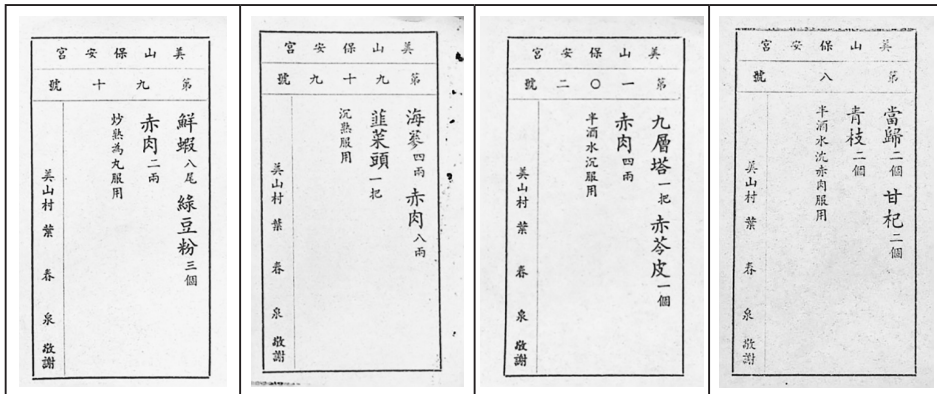 美山保安宮
第九十號
鮮蝦八尾 綠豆粉三個
赤肉二兩
炒熟為丸服用
美山村 葉春泉 敬謝
美山保安宮
第九十九號
海參四兩 赤肉八兩
韮菜頭一把
沉熟服用
美山村 葉春泉 敬謝
美山保安宮
第一〇二號
九層塔一把 赤苓皮一個
赤肉四兩
半酒水沉服用
美山村 葉春泉 敬謝
美山保安宮
第八號
當歸二個 甘杞二個
青枝二個
半酒水沉赤肉服用
美山村 葉春泉 敬謝